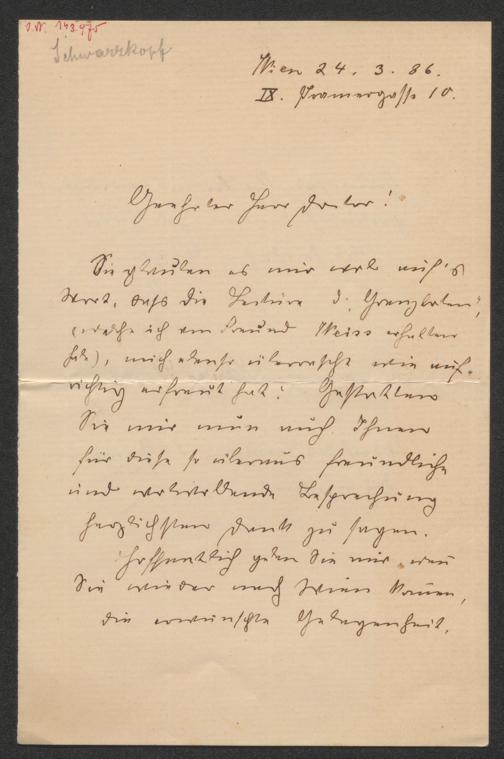 I.N. 143.975
Schwarzkopf
Wien 24. 3. 86.
IX. Pramergasse 10.
Geehrter Herr Doctor!
Sie glauben es mir wol auf's
Wort, dass die Lectüre d. „Grenzboten",
(welche ich von Freund Weiss erhalten
habe), mich ebenso überrascht wie auf-
richtig erfreut hat! Gestatten
Sie mir nun auch Ihnen
für diese so überaus freundliche
und wolwollende Besprechung
herzlichsten Dank zu sagen.
Hoffentlich geben Sie mir, wenn
Sie wieder nach Wien kommen,
die erwünschte Gelegenheit,